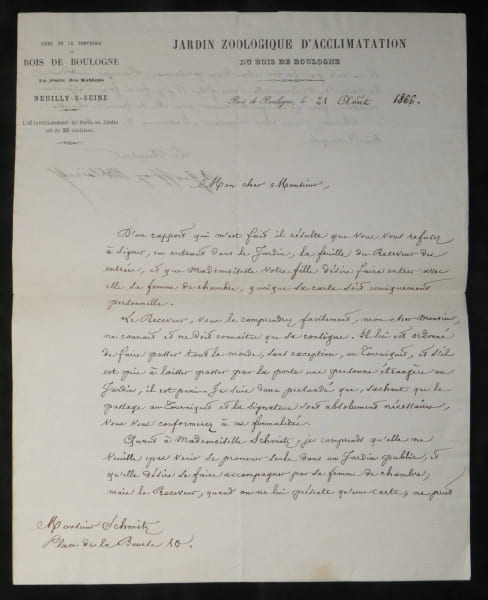 SIÈGE DE LA COMPAGNIE
AU
BOIS DE BOULOGNE
La Porte des Sablons
NEUILLY-S-SEINE
L'affranchissement de Paris au Jardin
est de 20 centimes.
JARDIN ZOOLOGIQUE D'ACCLIMATATION
DU BOIS DE BOULOGNE
Bois de Boulogne, le 21 Août 1866.
Mon cher Monsieur,
D'un rapport qui m'est fait il résulte que vous vous refusez
à signer, en entrant dans le Jardin, la feuille du Receveur des
entrées, et que Mademoiselle votre fille désire faire entrer avec
elle sa femme de chambre, quoique sa carte soit uniquement
personnelle.
Le Receveur, vous le comprendrez facilement, mon cher Monsieur,
ne connait et ne doit connaitre que sa consigne. Il lui est ordonné
de faire passer tout le monde, sans exception, au Tourniquet, et s'il
est pris à laisser passer par la porte une personne étrangère au
Jardin, il est puni. Je suis donc persuadé que, sachant que le
passage au Tourniquet et la signature sont absolument nécessaires,
vous vous conformerez à ces formalités.
Quant à Mademoiselle Schmitz, je comprends qu'elle ne
veuille pas venir se promener seule dans un Jardin public, et
qu'elle désire se faire accompagner par sa femme de chambre;
mais le Receveur, quand on ne lui présente qu'une carte, ne peut
Monsieur Schmitz
Place de la Bourse 10.